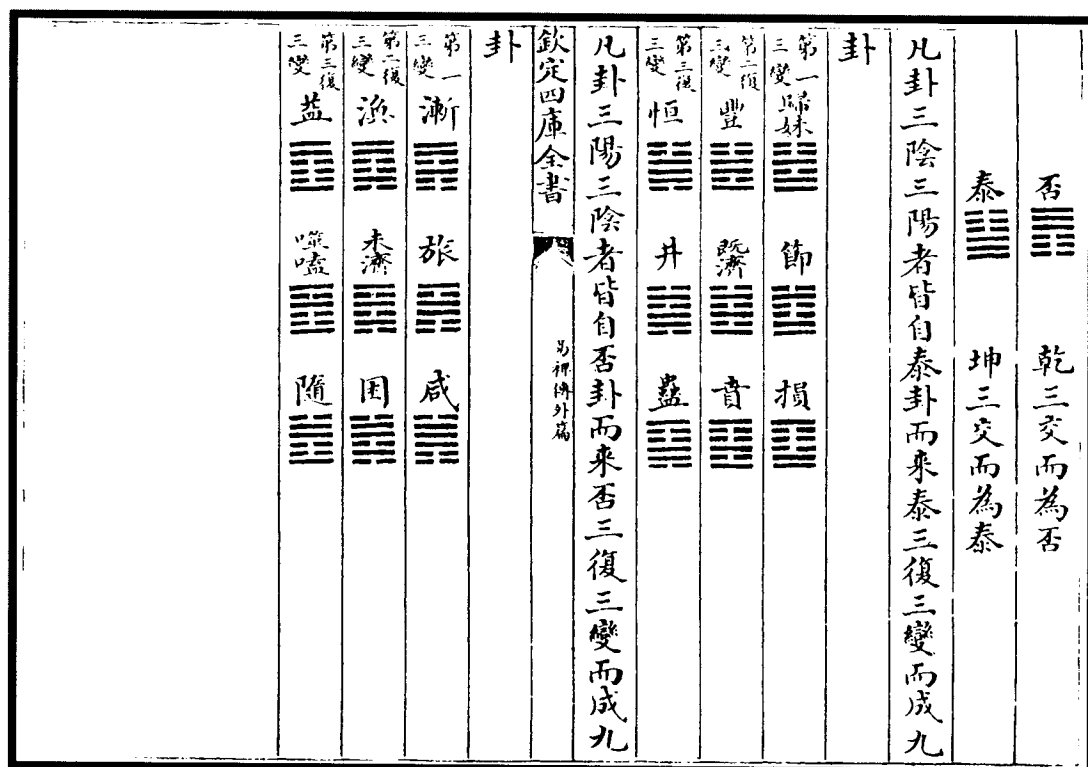 否䷋ 乾三交而為否
泰䷊ 坤三交而為泰
凡卦三陰三陽者皆自泰卦而来泰三復三變而成九
卦
第一三變 歸妹䷵ 節䷻ 損䷨
第二復三變 豐䷶ 旣濟䷾ 賁䷕
第三復三變 恒䷟ 井䷯ 蠱䷑
凡卦三陽三陰者皆自否卦而来否三復三變而成九
欽定四庫全書
易裨傳外篇
卦
第一三變 漸䷴ 旅䷷ 咸䷞
第二復三變 渙䷺ 未濟䷿ 困䷮
第三復三變 益䷩ 噬嗑䷔ 隨䷐